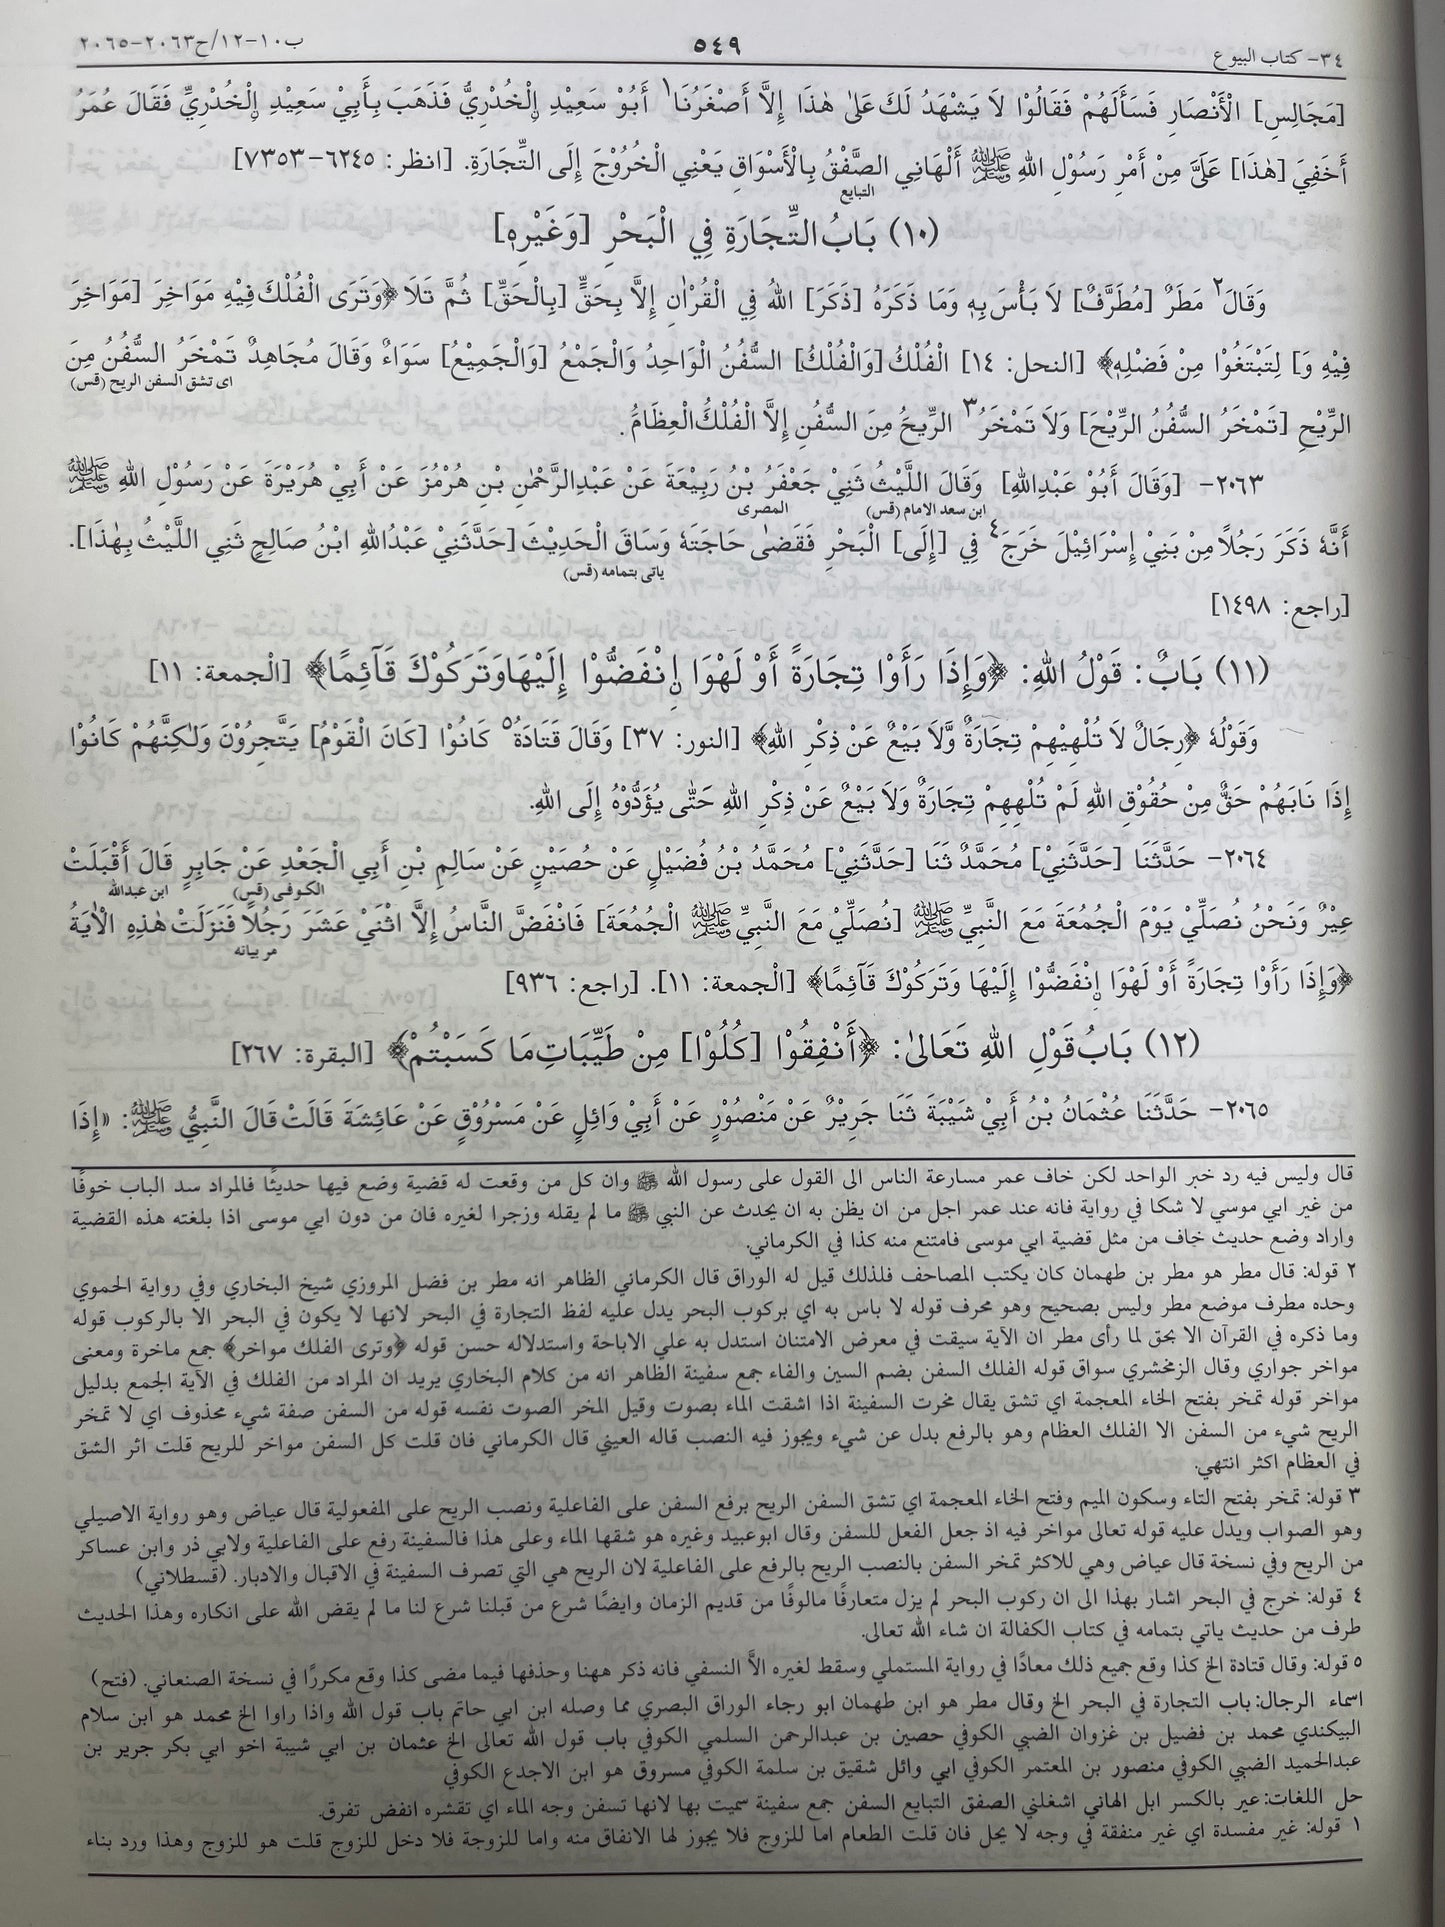 ٣٤- كتاب البيوع
٥٤٩
ب١٠-١٢/ح٢٠٦٣-٢٠٦٥
[مَجَالِسِ] الْأَنْصَارِ فَسَأَلَهُمْ فَقَالُوْا لَا يَشْهَدُ لَكَ عَلىٰ هٰذَا إِلَّا أَصْغَرُنَا١ أَبُوْ سَعِيْدٍ اِلْخُدْرِيُّ فَذَهَبَ بِأَبِيْ سَعِيْدٍ اِلْخُدْرِيِّ فَقَالَ عُمَرُ
أَخَفِيَ [هٰذَا] عَلَيَّ مِنْ أَمْرِ رَسُوْلِ اللهِ ﷺ أَلْهَانِي الصَّفْقُ بِالْأَسْوَاقِ يَعْنِي الْخُرُوْجَ إِلَى التِّجَارَةِ. [انظر: ٦٢٤٥-٧٣٥٣]
التبايع
(١٠) بَابُ التِّجَارَةِ فِي الْبَحْرِ [وَغَيْرِهٖ]
وَقَالَ٢ مَطَرٌ [مُطَرَّفٌ] لَا بَأْسَ بِهٖ وَمَا ذَكَرَهُ [ذَكَرَ] اللهُ فِي الْقُرْاٰنِ إِلَّا بِحَقٍّ [بِالْحَقِّ] ثُمَّ تَلَا ﴿وَتَرَى الْفُلْكَ فِيْهِ مَوَاخِرَ [مَوَاخِرَ
فِيْهِ وَ] لِتَبْتَغُوْا مِنْ فَضْلِهٖ﴾ [النحل: ١٤] الْفُلْكُ [وَالْفُلْكُ] السُّفُنُ الْوَاحِدُ وَالْجَمْعُ [وَالْجَمِيْعُ] سَوَاءٌ وَقَالَ مُجَاهِدٌ تَمْخَرُ السُّفُنُ مِنَ
اى تشق السفن الريح (قس)
الرِّيْحِ [تَمْخَرُ السُّفُنُ الرِّيْحَ] وَلَا تَمْخَرُ٣ الرِّيحُ مِنَ السُّفُنِ إِلَّا الْفُلْكُ الْعِظَامُ.
٢٠٦٣- [وَقَالَ أَبُوْ عَبْدِاللهِ] وَقَالَ اللَّيْثُ ثَنِيْ جَعْفَرُ بْنُ رَبِيْعَةَ عَنْ عَبْدِالرَّحْمٰنِ بْنِ هُرْمُزَ عَنْ أَبِيْ هُرَيْرَةَ عَنْ رَسُوْلِ اللهِ ﷺ
ابن سعد الامام (قس) المصرى
أَنَّهُ ذَكَرَ رَجُلًا مِنْ بَنِيْ إِسْرَائِيْلَ خَرَجَ٤ فِي [إِلَى] الْبَحْرِ فَقَضٰى حَاجَتَهُ وَسَاقَ الْحَدِيْثَ [حَدَّثَنِيْ عَبْدُاللهِ ابْنُ صَالِحٍ ثَنِي اللَّيْثُ بِهٰذَا].
ياتى بتمامه (قس)
[راجع: ١٤٩٨]
(١١) بَابٌ: قَوْلُ اللهِ: ﴿وَإِذَا رَأَوْا تِجَارَةً أَوْ لَهْوَا اِنْفَضُّوْا إِلَيْهَا وَتَرَكُوْكَ قَآئِمًا﴾ [الْجمعة: ١١]
وَقَوْلُهُ ﴿رِجَالٌ لَا تُلْهِيْهِمْ تِجَارَةٌ وَّلَا بَيْعٌ عَنْ ذِكْرِ اللهِ﴾ [النور: ٣٧] وَقَالَ قَتَادَةُ٥ كَانُوْا [كَانَ الْقَوْمُ] يَتَّجِرُوْنَ وَلٰكِنَّهُمْ كَانُوْا
إِذَا نَابَهُمْ حَقٌّ مِنْ حُقُوْقِ اللهِ لَمْ تُلْهِهِمْ تِجَارَةٌ وَلَا بَيْعٌ عَنْ ذِكْرِ اللهِ حَتّٰى يُؤَدُّوْهُ إِلَى اللهِ.
٢٠٦٤- حَدَّثَنَا [حَدَّثَنِيْ] مُحَمَّدٌ ثَنَا [حَدَّثَنِيْ] مُحَمَّدُ بْنُ فُضَيْلٍ عَنْ حُصَيْنٍ عَنْ سَالِمِ بْنِ أَبِي الْجَعْدِ عَنْ جَابِرٍ قَالَ أَقْبَلَتْ
الكوفى (قس) ابن عبدالله
عِيْرٌ وَنَحْنُ نُصَلِّيْ يَوْمَ الْجُمُعَةَ مَعَ النَّبِيِّ ﷺ [نُصَلِّيْ مَعَ النَّبِيِّ ﷺ الْجُمُعَةَ] فَانْفَضَّ النَّاسُ إِلَّا اثْنَيْ عَشَرَ رَجُلًا فَنَزَلَتْ هٰذِهِ الْاٰيَةُ
مر بيانه
﴿وَإِذَا رَأَوْا تِجَارَةً أَوْ لَهْوَا اِنْفَضُّوْا إِلَيْهَا وَتَرَكُوْكَ قَآئِمًا﴾ [الْجمعة: ١١]. [راجع: ٩٣٦]
(١٢) بَابُ قَوْلِ اللهِ تَعَالىٰ: ﴿أَنْفِقُوْا [كُلُوْا] مِنْ طَيِّبَاتِ مَا كَسَبْتُمْ﴾ [البقرة: ٢٦٧]
٢٠٦٥- حَدَّثَنَا عُثْمَانُ بْنُ أَبِيْ شَيْبَةَ ثَنَا جَرِيْرٌ عَنْ مَنْصُوْرٍ عَنْ أَبِيْ وَائِلٍ عَنْ مَسْرُوْقٍ عَنْ عَائِشَةَ قَالَتْ قَالَ النَّبِيُّ ﷺ: «إِذَا
قال وليس فيه رد خبر الواحد لكن خاف عمر مسارعة الناس الى القول على رسول الله ﷺ وان كل من وقعت له قضية وضع فيها حديثًا فالمراد سد الباب خوفًا
من غير ابي موسي لا شكا في رواية فانه عند عمر اجل من ان يظن به ان يحدث عن النبي ﷺ ما لم يقله وزجرا لغيره فان من دون ابي موسى اذا بلغته هذه القضية
واراد وضع حديث خاف من مثل قضية ابي موسى فامتنع منه كذا في الكرماني.
٢ قوله: قال مطر هو مطر بن طهمان كان يكتب المصاحف فلذلك قيل له الوراق قال الكرماني الظاهر انه مطر بن فضل المروزي شيخ البخاري وفي رواية الحموي
وحده مطرف موضع مطر وليس بصحيح وهو محرف قوله لا باس به اي بركوب البحر يدل عليه لفظ التجارة في البحر لانها لا يكون في البحر الا بالركوب قوله
وما ذكره في القرآن الا بحق لما رأى مطر ان الآية سيقت في معرض الامتنان استدل به علي الاباحة واستدلاله حسن قوله ﴿وترى الفلك مواخر﴾ جمع ماخرة ومعنى
مواخر جواري وقال الزمخشري سواق قوله الفلك السفن بضم السين والفاء جمع سفينة الظاهر انه من كلام البخاري يريد ان المراد من الفلك في الآية الجمع بدليل
مواخر قوله تمخر بفتح الخاء المعجمة اي تشق يقال مخرت السفينة اذا اشقت الماء بصوت وقيل المخر الصوت نفسه قوله من السفن صفة شيء محذوف اي لا تمخر
الريح شيء من السفن الا الفلك العظام وهو بالرفع بدل عن شيء ويجوز فيه النصب قاله العيني قال الكرماني فان قلت كل السفن مواخر للريح قلت اثر الشق
في العظام اكثر انتهي.
٣ قوله: تمخر بفتح التاء وسكون الميم وفتح الخاء المعجمة اي تشق السفن الريح برفع السفن على الفاعلية ونصب الريح على المفعولية قال عياض وهو رواية الاصيلي
وهو الصواب ويدل عليه قوله تعالى مواخر فيه اذ جعل الفعل للسفن وقال ابوعبيد وغيره هو شقها الماء وعلى هذا فالسفينة رفع على الفاعلية ولابي ذر وابن عساكر
من الريح وفي نسخة قال عياض وهي للاكثر تمخر السفن بالنصب الريح بالرفع على الفاعلية لان الريح هي التي تصرف السفينة في الاقبال والادبار. (قسطلاني)
٤ قوله: خرج في البحر اشار بهذا الى ان ركوب البحر لم يزل متعارفًا مالوفًا من قديم الزمان وايضًا شرع من قبلنا شرع لنا ما لم يقض الله على انكاره وهذا الحديث
طرف من حديث ياتي بتمامه في كتاب الكفالة ان شاء الله تعالى.
٥ قوله: وقال قتادة الخ كذا وقع جميع ذلك معادًا في رواية المستملي وسقط لغيره الاَّ النسفي فانه ذكر ههنا وحذفها فيما مضى كذا وقع مكررًا في نسخة الصنعاني. (فتح)
اسماء الرجال: باب التجارة في البحر الخ وقال مطر هو ابن طهمان ابو رجاء الوراق البصري مما وصله ابن ابي حاتم باب قول الله واذا راوا الخ محمد هو ابن سلام
البيكندي محمد بن فضيل بن غزوان الضبي الكوفي حصين بن عبدالرحمن السلمي الكوفي باب قول الله تعالى الخ عثمان بن ابي شيبة اخو ابي بكر جرير بن
عبدالحميد الضبي الكوفي منصور بن المعتمر الكوفي ابي وائل شقيق بن سلمة الكوفي مسروق هو ابن الاجدع الكوفي
حل اللغات: عير بالكسر ابل الهاني اشغلني الصفق التبايع السفن جمع سفينة سميت بها لانها تسفن وجه الماء اي تقشره انفض تفرق.
١ قوله: غير مفسدة اي غير منفقة في وجه لا يحل فان قلت الطعام اما للزوج فلا يجوز لها الانفاق منه واما للزوجة فلا دخل للزوج قلت هو للزوج وهذا ورد بناء